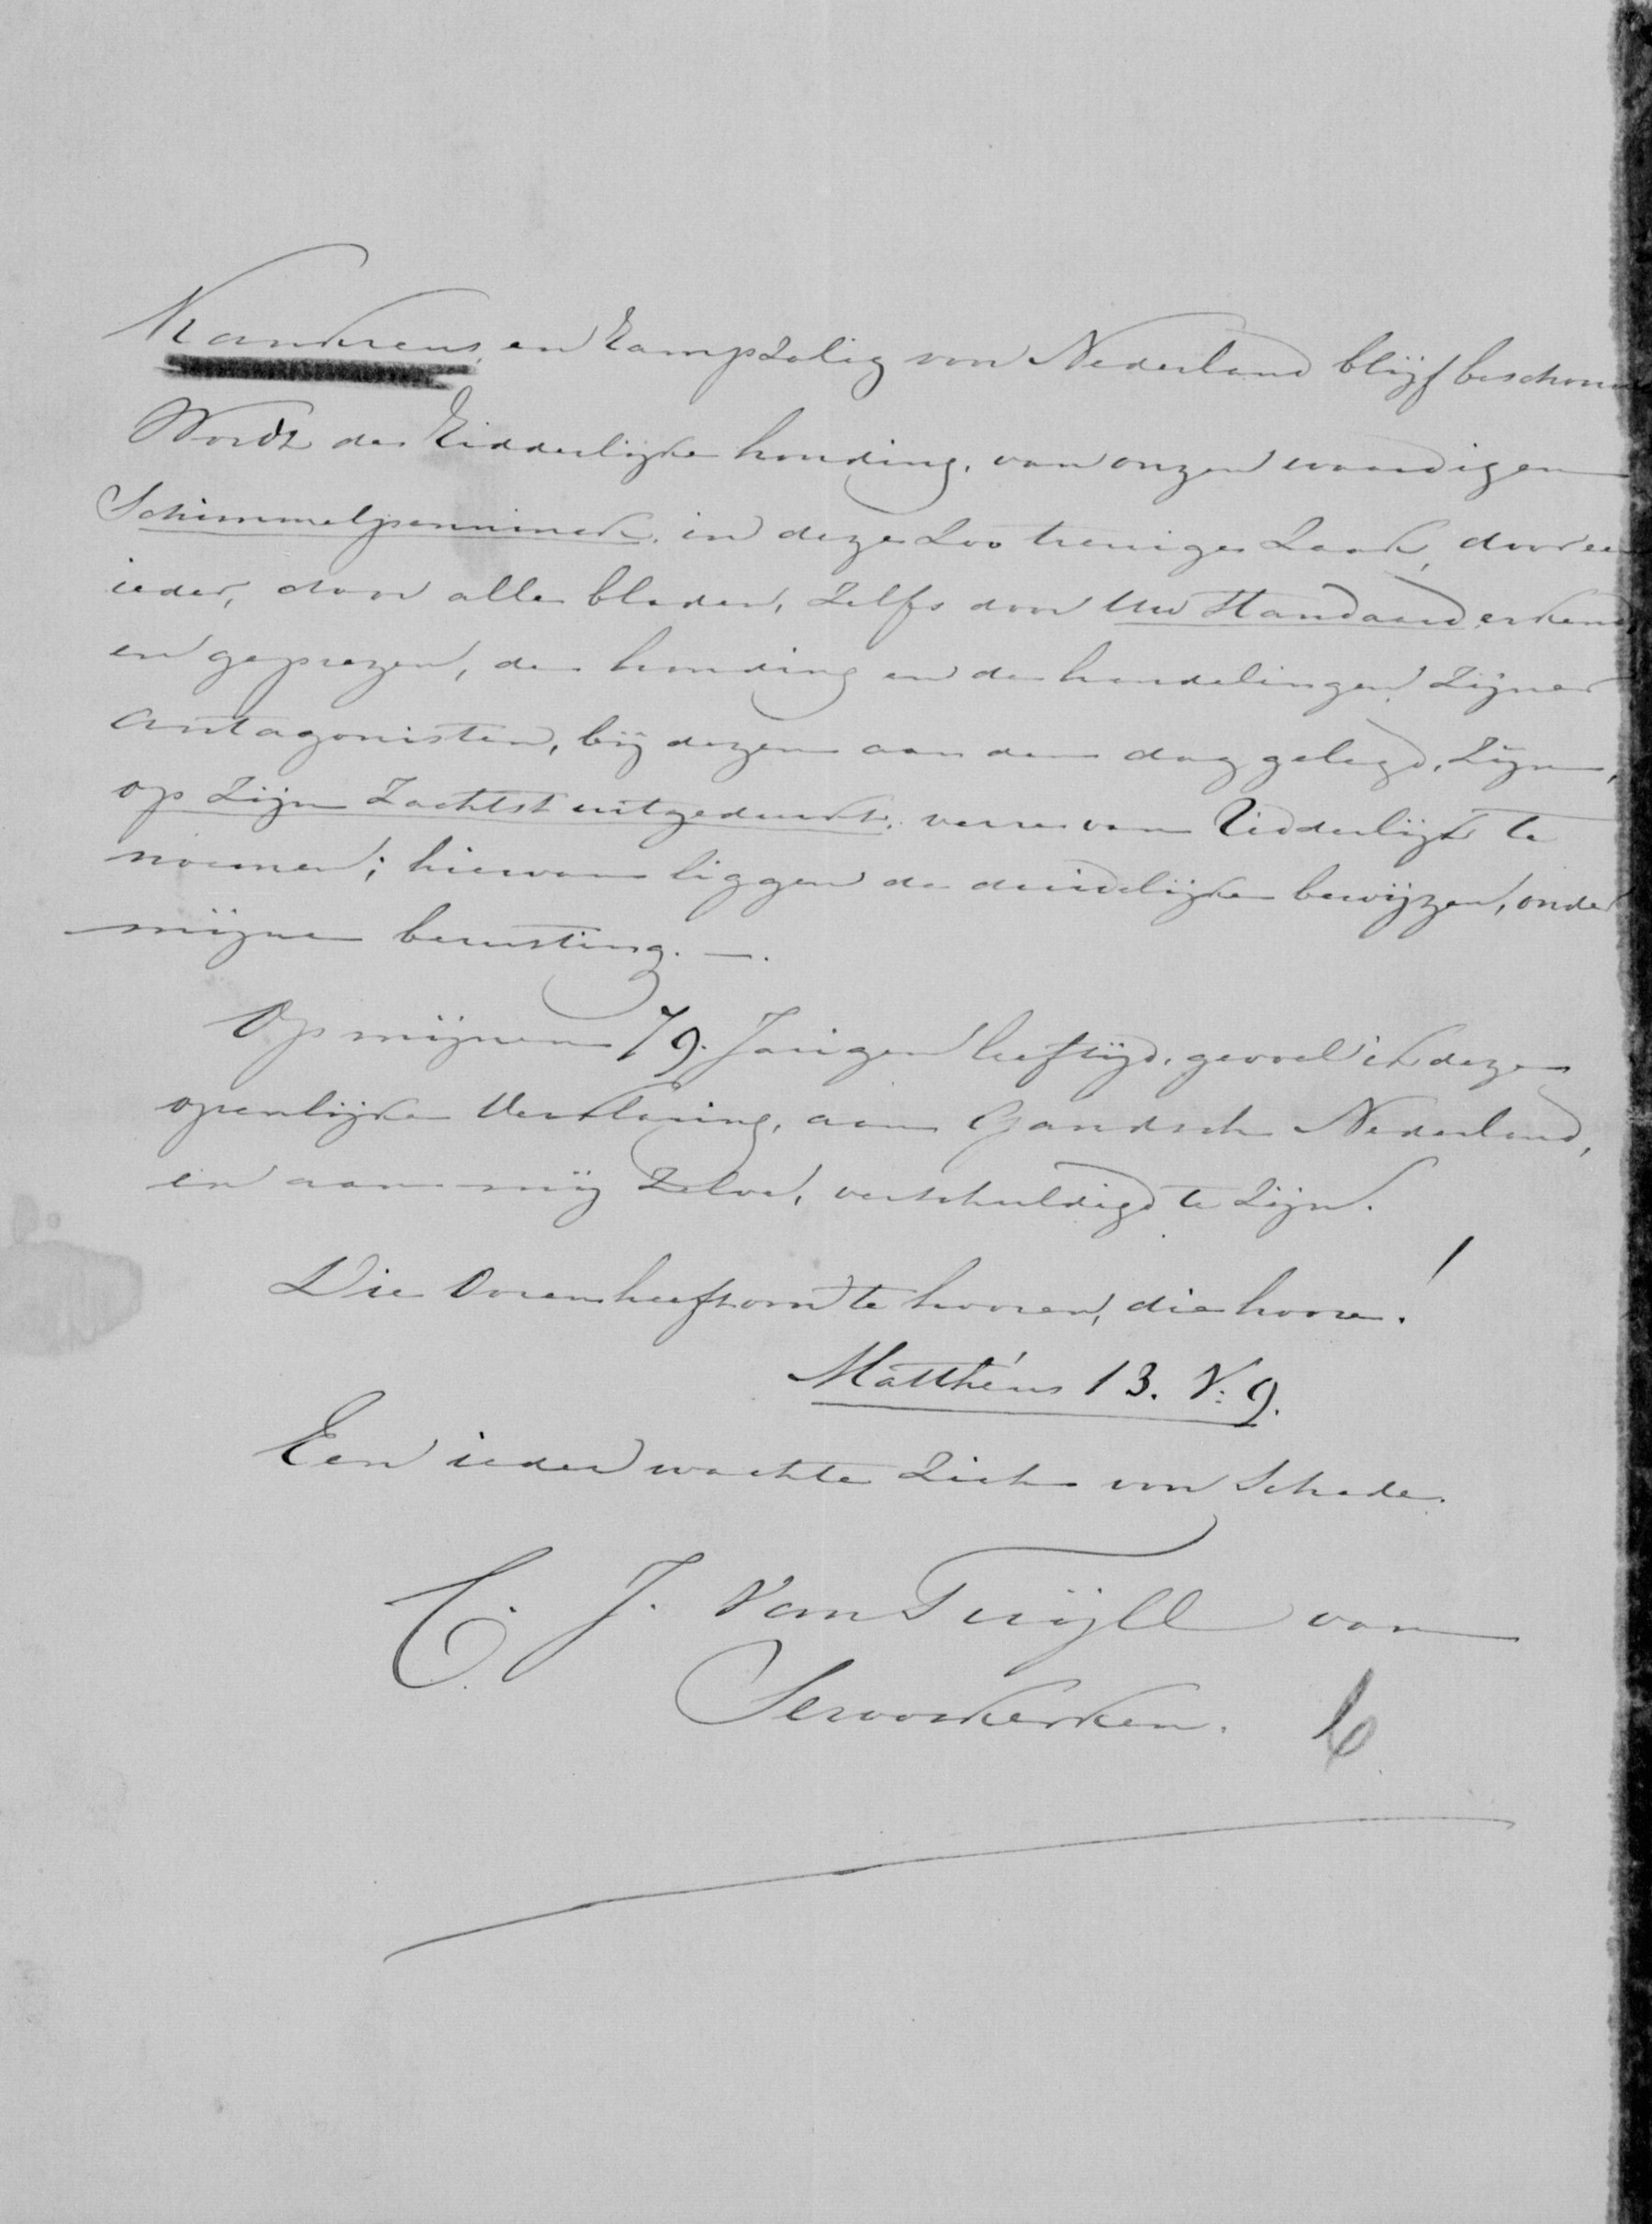 Kankreus en Rampzalig voor Nederland blijf beschouw
Wordt de Ridderlijke houding, van onzen waardigen
Schimmelpenninck, in deze zoo treurige Zaak, door een
ieder, door alle bladen, zelfs door Uw Standaard erkend
en geprezen, de houding en de handelingen zijner
antagonisten, bij dezen aan den dag gelegd, zijn,
op zijn Zachtst uitgedrukt, verre van Ridderlijk te
noemen; hiervan liggen de duidelijke bewijzen, onder
mijne berusting. —.
Op mijnen 79. Jarigen leeftijd, gevoel ik deze
openlijke Verklaring, aan Gandsch Nederland,
en aan mij Zelve, verschuldigd te zijn.
Die Ooren heeft om te hooren, die hoore.!
Matthéus 13. V: 9.
Een ieder wachte Zich van Schade.
C. J. Van Tuÿll van
Serooskerken.